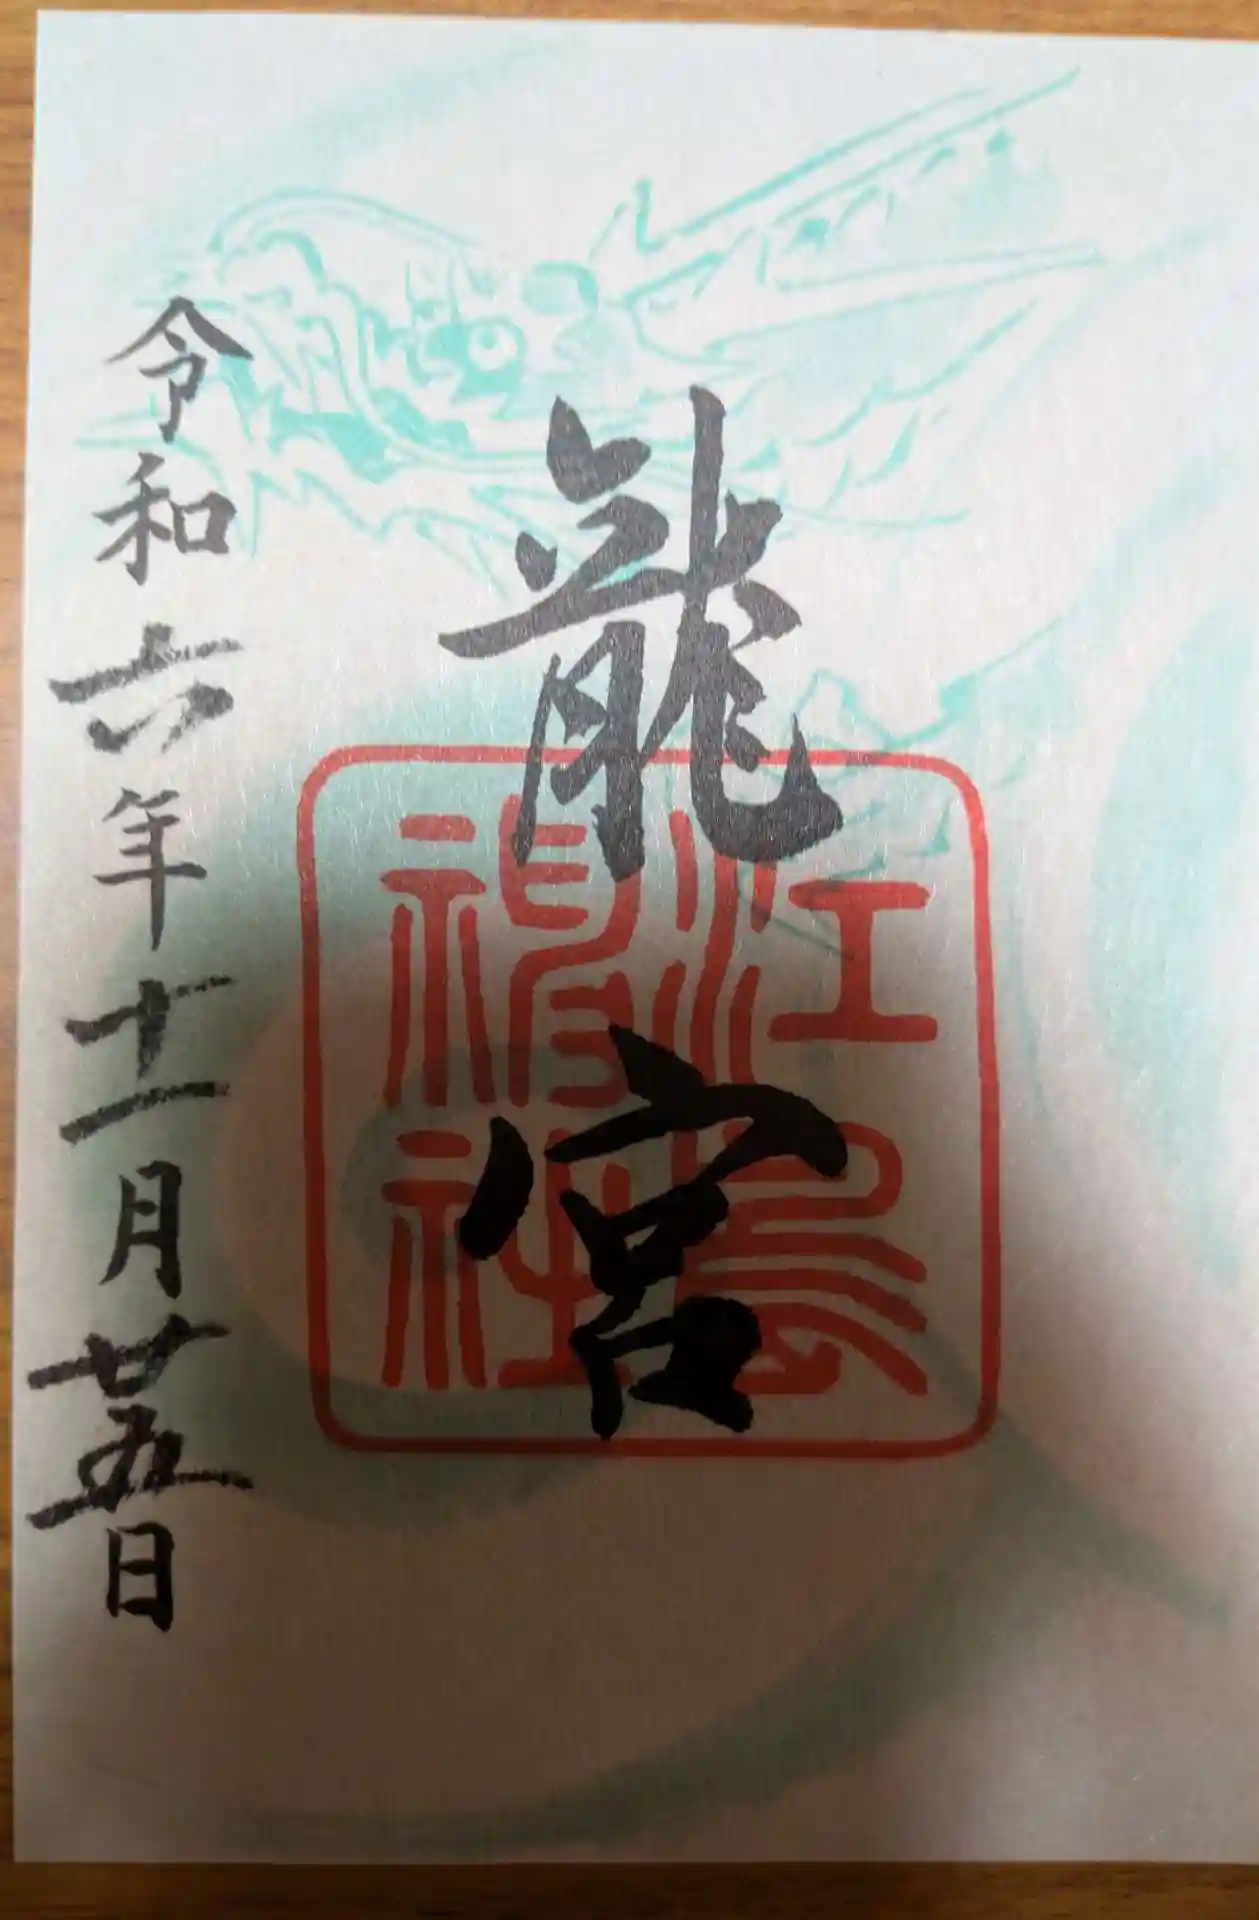 龍宮
江島神社
令和六年十一月廿五日